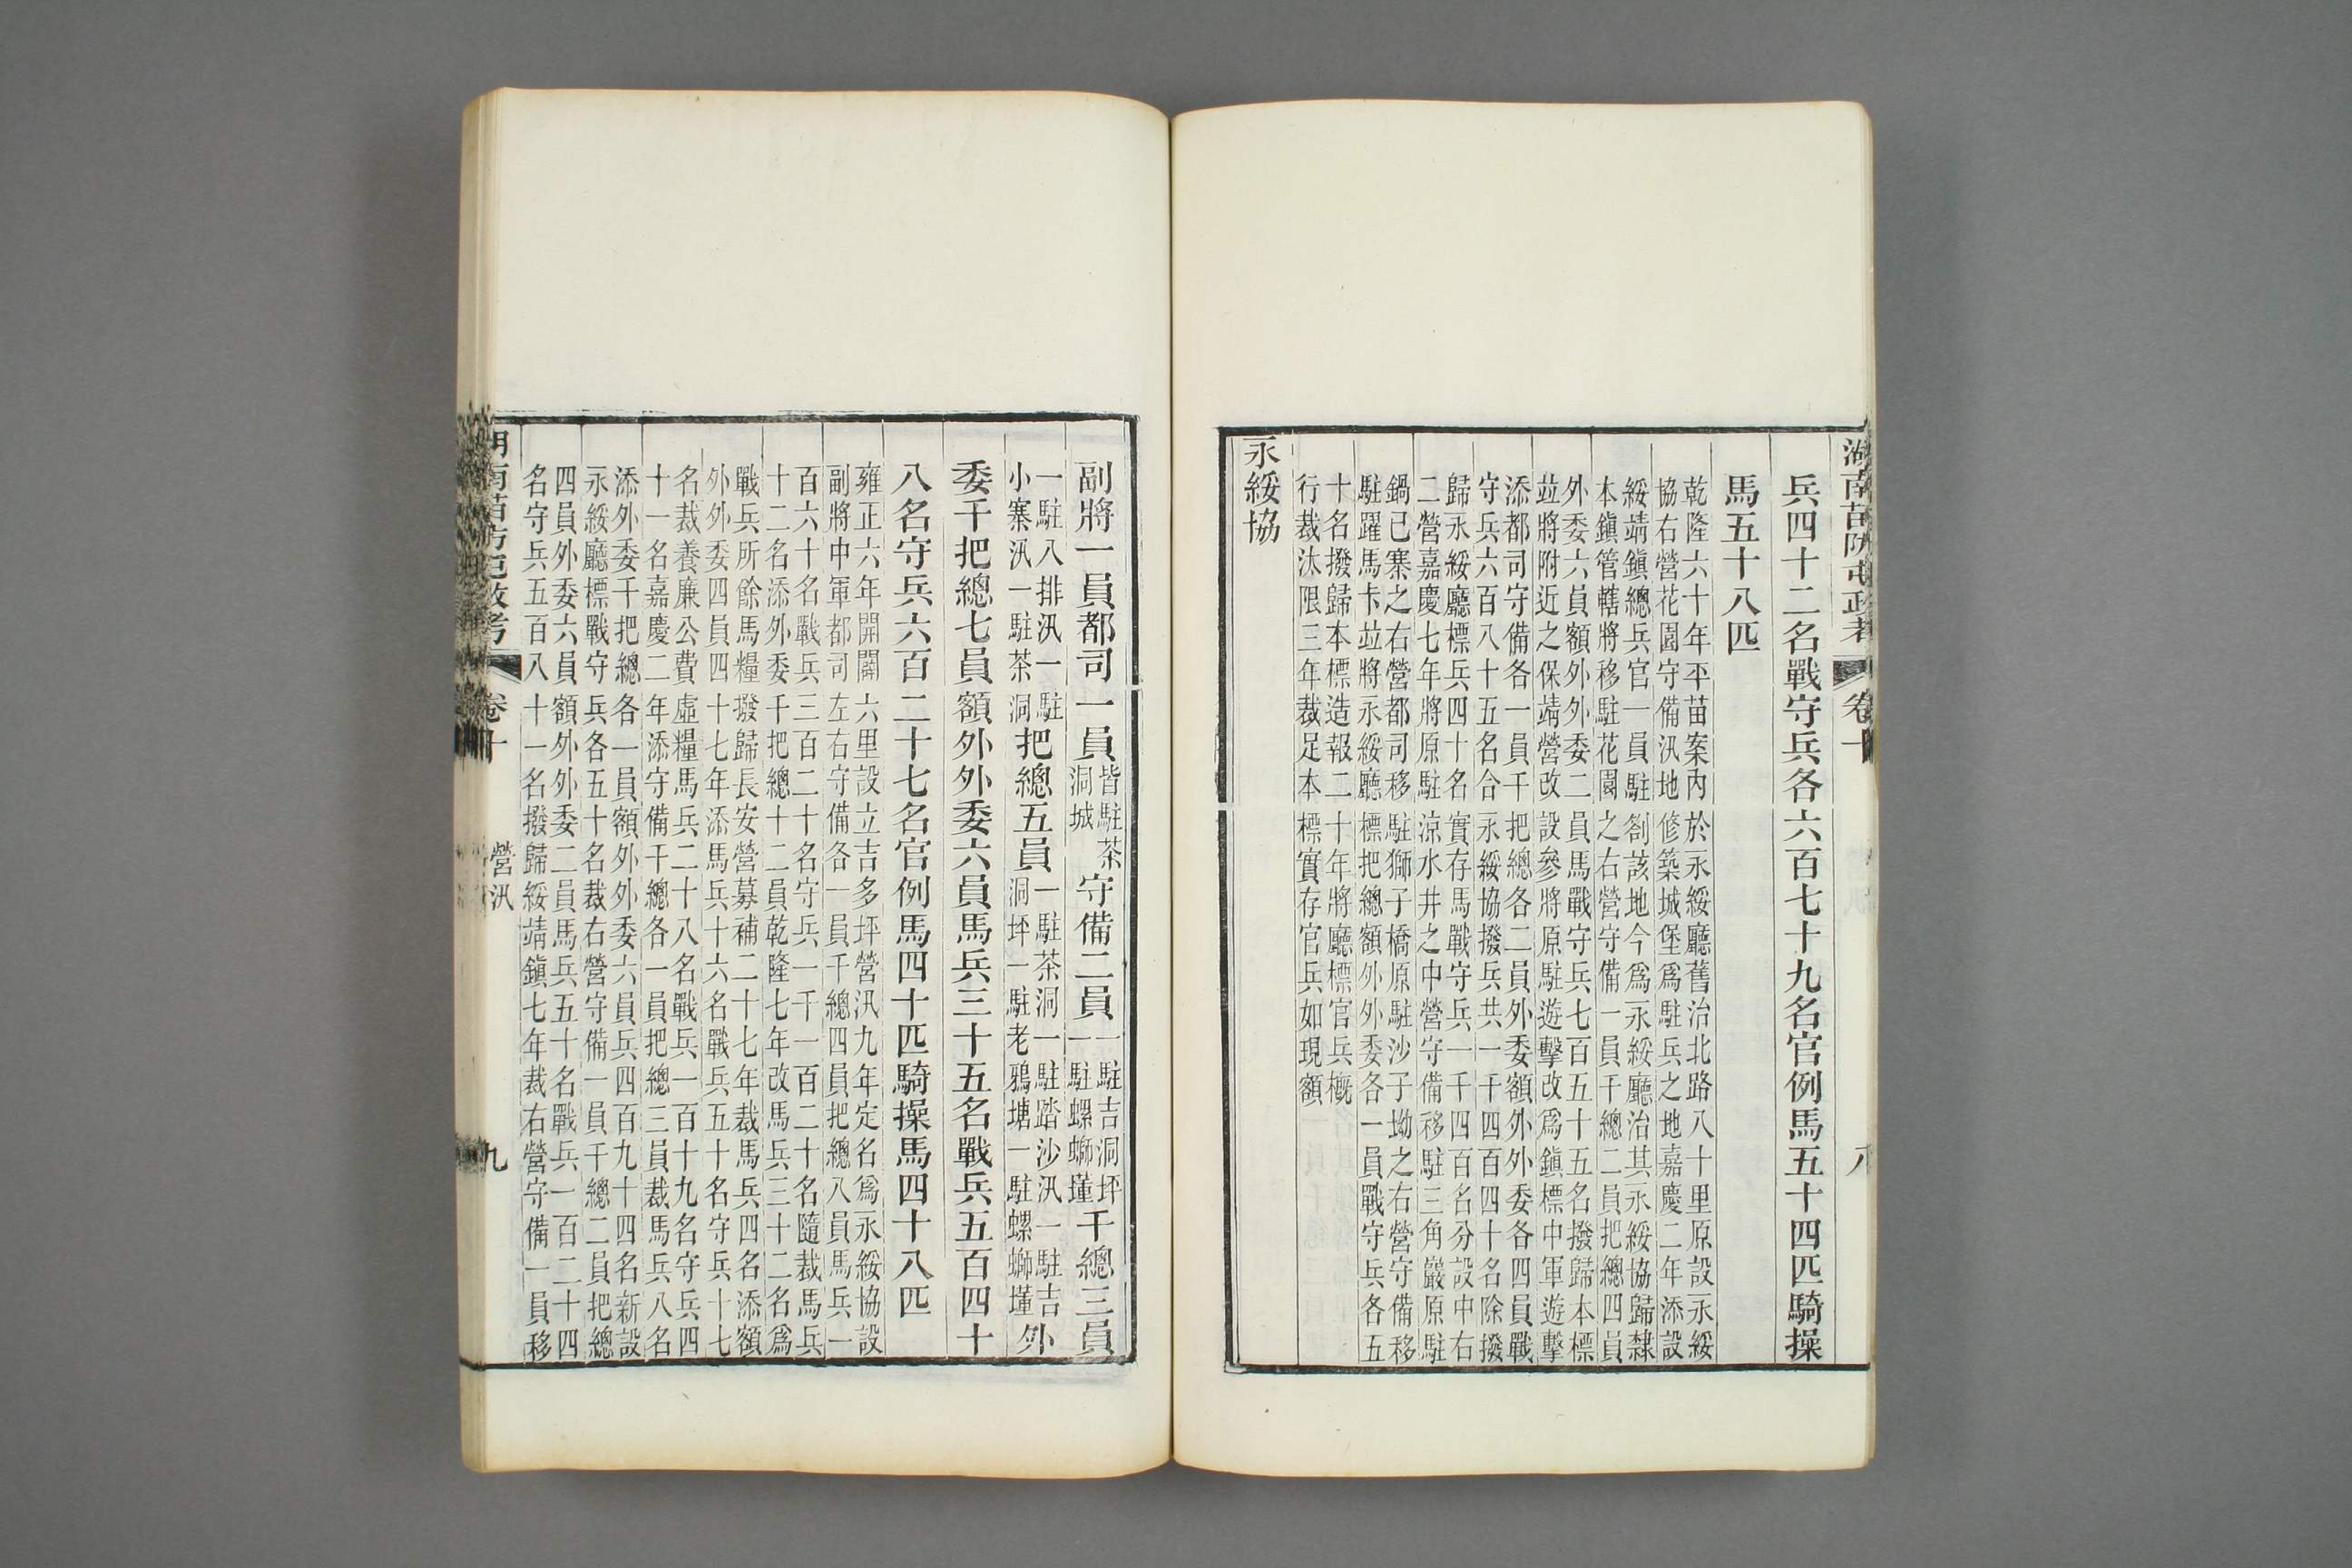 湖南苗防屯政考 卷十 八
兵四十二名戰守兵各六百七十九名官例馬五十四匹騎操
馬五十八匹
乾隆六十年平苗案內於永綏廳舊治北路八十里原設永綏
協右營花園守備汛地修築城堡爲駐兵之地嘉慶二年添設
綏靖鎮總兵官一員駐劄該地今爲永綏廳治其永綏協歸隸
本鎮管轄將移駐花園之右營守備一員千總二員把總四員
外委六員額外外委二員馬戰守兵七百五十五名撥歸本標
並將附近之保靖營改設參將原駐遊擊改爲鎮標中軍遊擊
添都司守備各一員千把總各二員外委額外外委各四員戰
守兵六百八十五名合永綏協撥兵共一千四百四十名除撥
歸永綏廳標兵四十名實存馬戰守兵一千四百名分設中右
二營嘉慶七年將原駐涼水井之中營守備移駐三角巖原駐
鍋已寨之右營都司移駐獅子橋原駐沙子坳之右營守備移
駐躍馬卡並將永綏廳標把總額外外委各一員戰守兵各五
十名撥歸本標造報二十年將廳標官兵概
行裁汰限三年裁足本標實存官兵如現額
永綏協
副將一員都司一員皆駐茶洞城守備二員一駐吉洞坪一駐螺螄墐千總三員
一駐八排汛一駐小寨汛一駐茶洞把總五員一駐茶洞一駐踏沙汛一駐吉洞坪一駐老鴉塘一駐螺螄墐外
委千把總七員額外外委六員馬兵三十五名戰兵五百四十
八名守兵六百二十七名官例馬四十匹騎操馬四十八匹
雍正六年開闢六里設立吉多坪營汛九年定名爲永綏協設
副將中軍都司左右守備各一員千總四員把總八員馬兵一
百六十名戰兵三百二十名守兵一千一百二十名隨裁馬兵
十二名添外委千把總十二員乾隆七年改馬兵三十二名爲
戰兵所餘馬糧撥歸長安營募補二十七年裁馬兵四名添額
外外委四員四十七年添馬兵十六名戰兵五十名守兵十七
名裁養廉公費虛糧馬兵二十八名戰兵一百十九名守兵四
十一名嘉慶二年添守備千總各一員把總三員裁馬兵八名
添外委千把總各一員額外外委六員兵四百九十四名新設
永綏廳標戰守兵各五十名裁右營守備一員千總二員把總
四員外委六員額外外委二員馬兵五十名戰兵一百二十四
名守兵五百八十一名撥歸綏靖鎮七年裁右營守備一員移
卷十 營汛 九